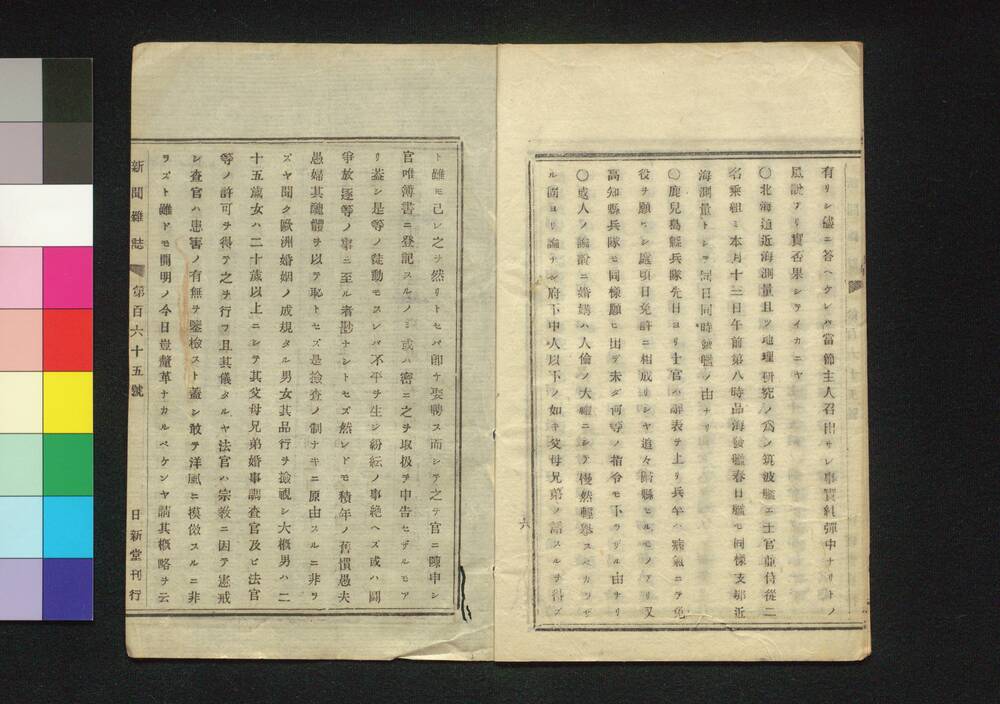 有リシ儘ニ答ヘケレバ當節主人召出サレ事實糺彈中ナリトノ
風說アリ實否果シテイカニヤ
〇北海道近海測量且ツ地理研究ノ爲メ筑波艦エ士官並侍從二
名乘組ミ本月十三日午前第八時品海發艦春日艦モ同樣支那近
海測量トシテ同日同時發艦ノ由ナリ
〇鹿兒島縣兵隊先日ヨリ士官ハ辭表ヲ上リ兵卒ハ病氣ニテ免
役ヲ願ヒシ處頃日免許ニ相成リシヤ追々歸縣セルモノアリ又
高知縣兵隊モ同樣願ヒ出デ未ダ何等ノ指令モ下ラザル由ナリ
〇或人ノ論說ニ婚媾ハ人倫ノ大禮ニシテ慢然輕擧スベカラザ
ル固ヨリ論ナシ府下中人以下ノ如キ父母兄弟ノ諾スルヲ得ズ
六
ト雖モ己レ之ヲ然リトセバ卽ケ娶聘ス而シテ之ヲ官ニ陳申シ
官唯簿書ニ登記スルノミ或ハ密ニ之ヲ取扱ヲ申告セザルモア
リ蓋シ是等ノ徒動モスレバ不平ヲ生シ紛紜ノ事絕ヘズ或ハ鬪
爭放逐等ノ事ニ至ル者尠ナシトセズ然レドモ積年ノ舊慣愚夫
愚婦其醜體ヲ以テ恥トセズ是撿査ノ制ナキニ原由スルニ非ラ
ズヤ聞ク歐洲婚姻ノ成規タル男女其品行ヲ撿視シ大概男ハ二
十五歲女ハ二十歲以上ニシテ其父母兄弟婚事調査官及ビ法官
等ノ許可ヲ得テ之ヲ行フ且其儀タルヤ法官ハ宗敎ニ因テ憲戒
シ査官ハ患害ノ有無ヲ鑒檢スト蓋シ敢テ洋風ニ模倣スルニ非
ラズト雖ドモ開明ノ今日豈釐革ナカルベケンヤ請其槪略ヲ云
新聞雜誌 第百六十五號 日新堂刊行